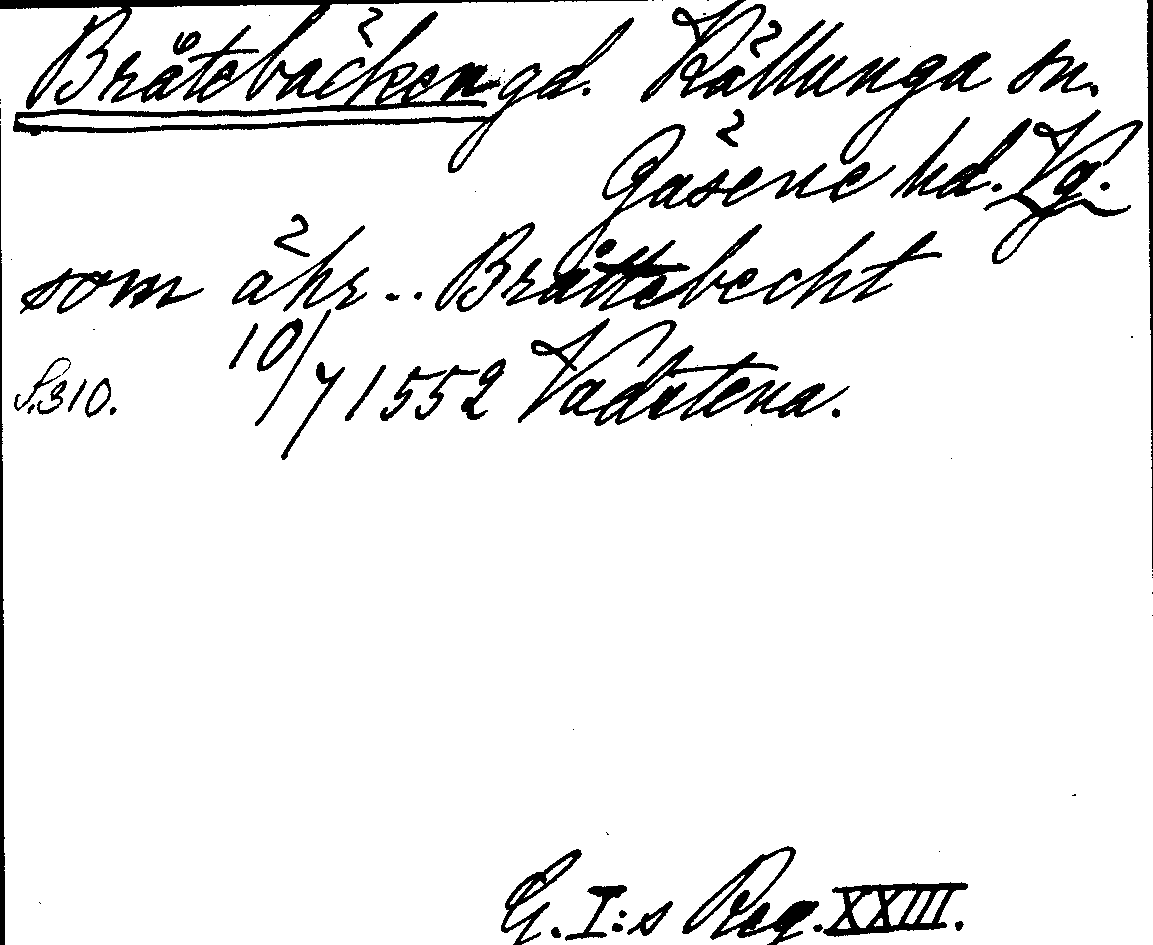 Bråtebäcken gd. Källunga sn.
Gäsene hd. Vg.
som ähr .. Bråttebecht
10/7 1552 Vadstena.
S. 310.
G. I:s Reg. XXIII.